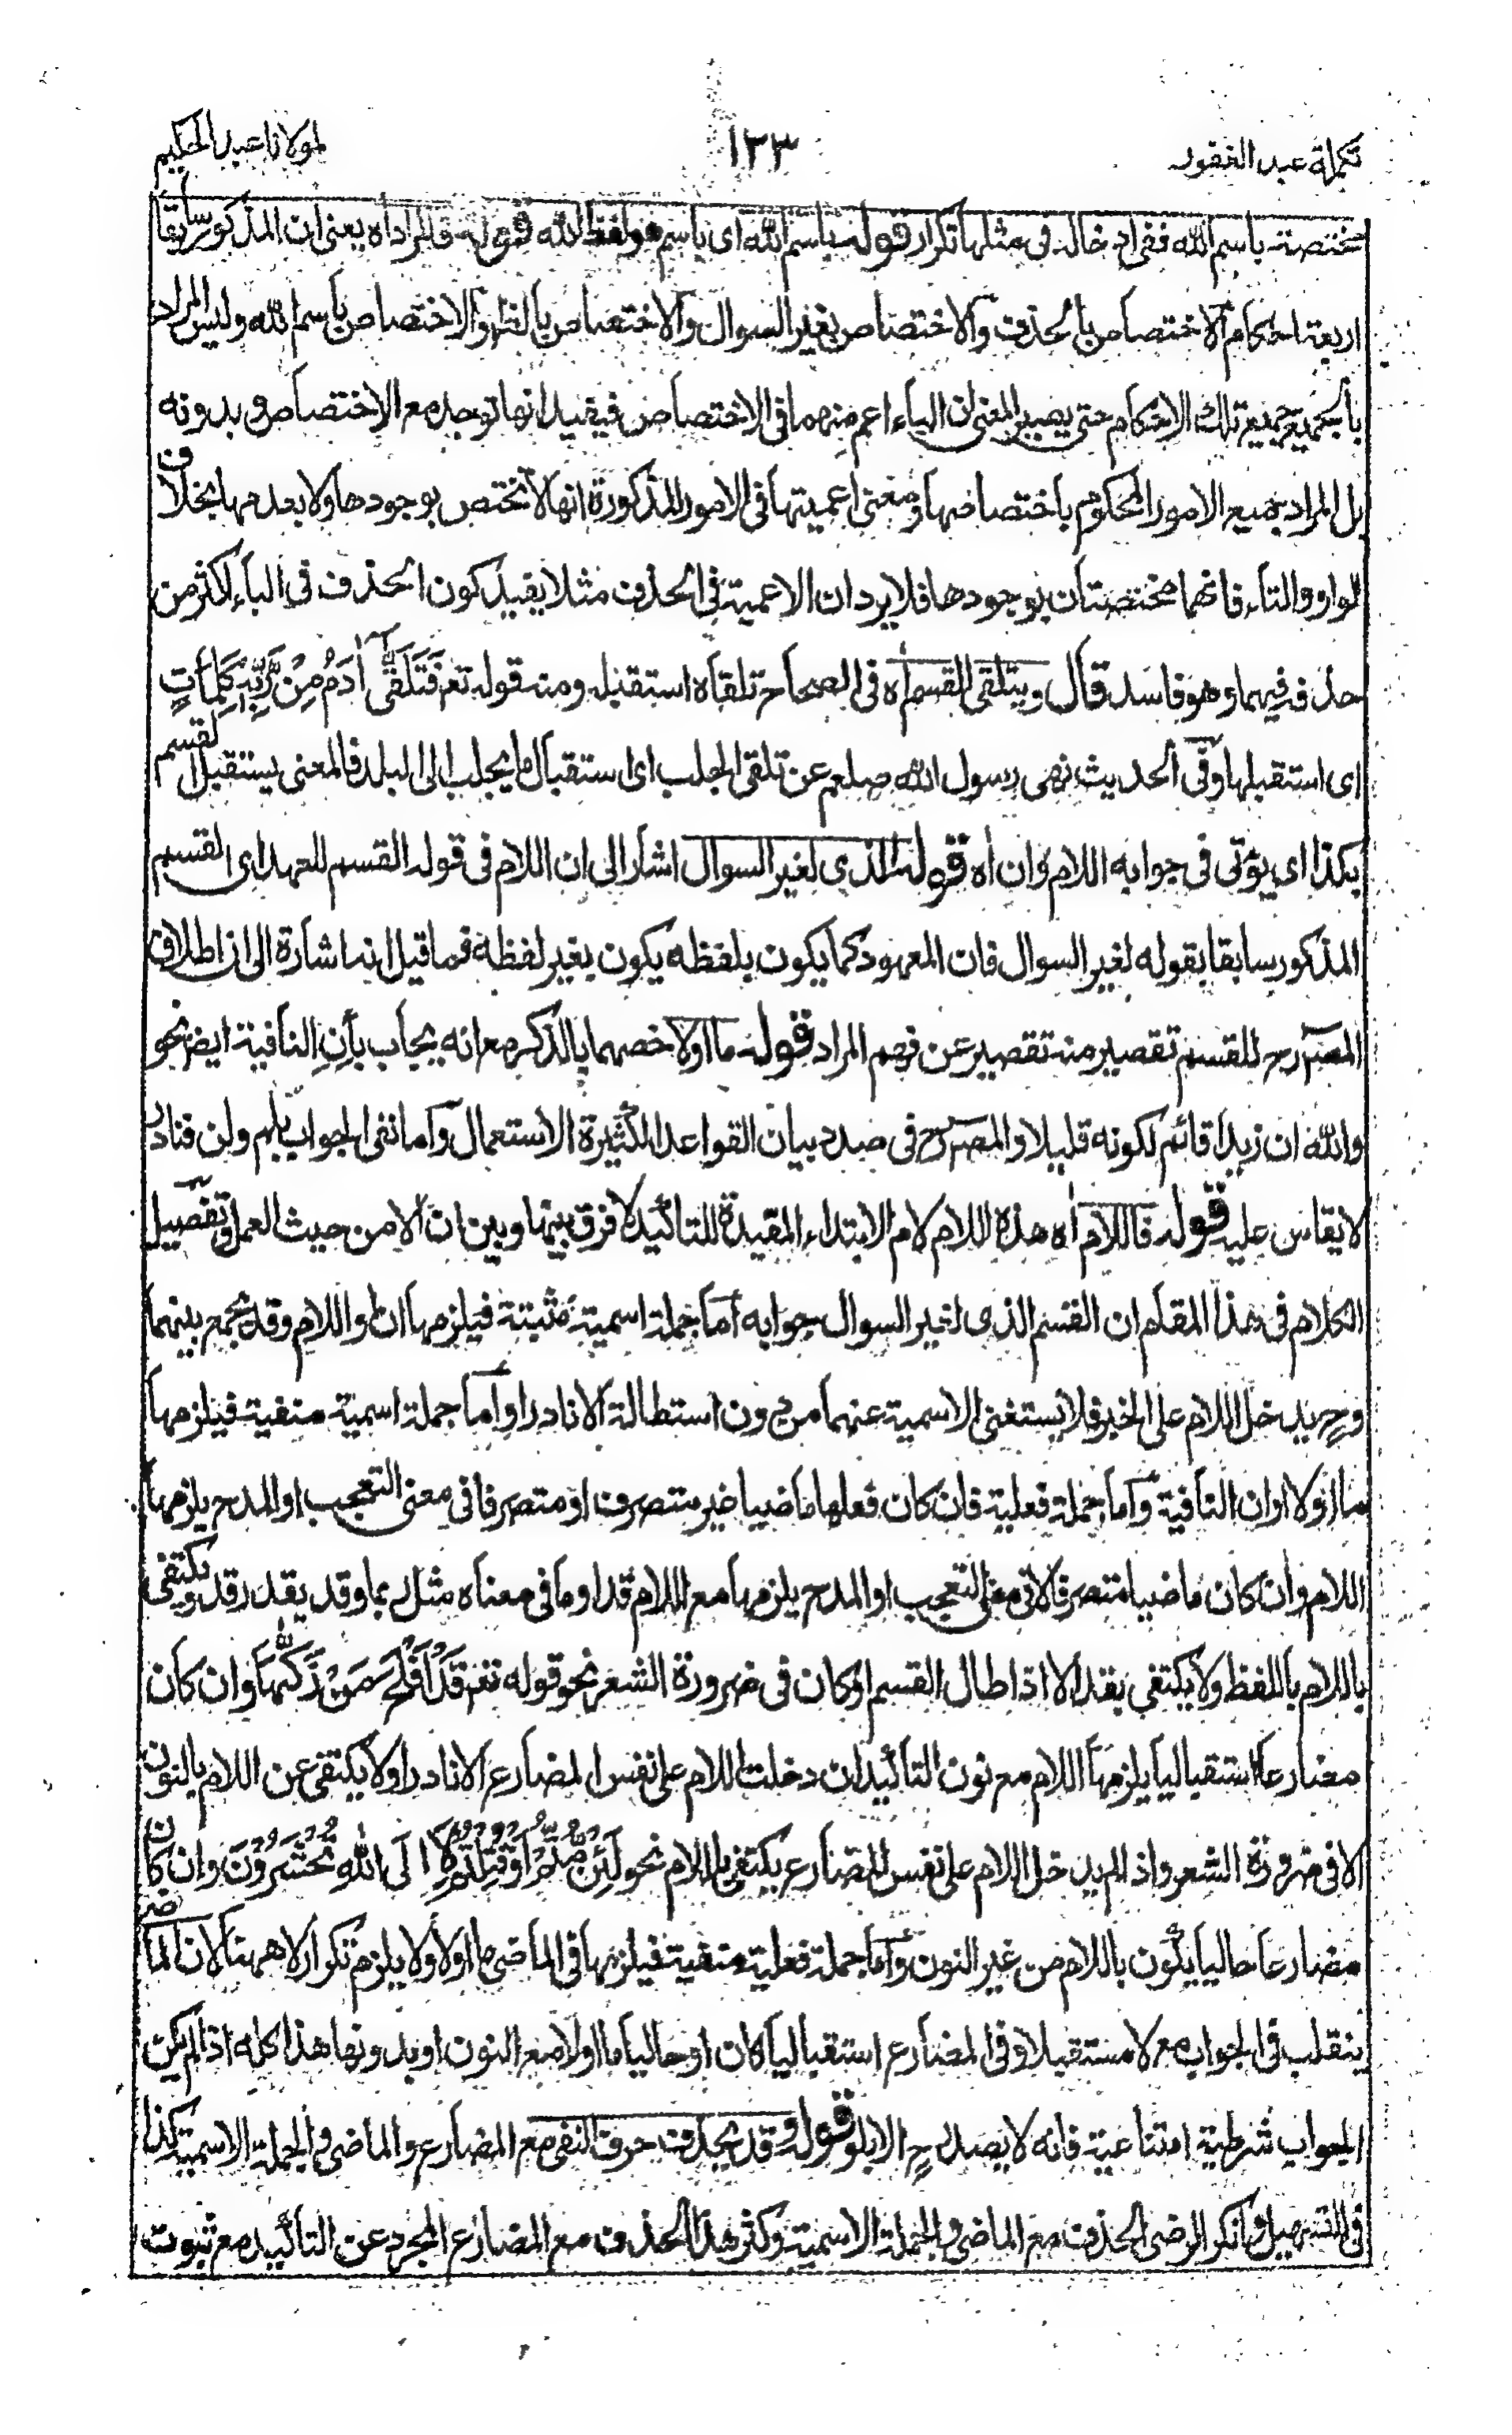 تكملة عبد الغفور ١٣٣ لمولانا عبد الحكيم
مختصة باسم الله ففى ادخاله فى مثلها تكرار قوله باسم الله اى باسم هو لفظ الله قوله فالمراد اه يعنى ان المذكور سابقا
اربعة احكام الاختصاص بالحذف والاختصاص بغير السوال والاختصاص بالظاهر والاختصاص باسم الله وليس المراد
بالجميع جميع تلك الاحكام حتى يصير المعنى ان الباء اعم منهما فى الاختصاص فيفيد انها توجد مع الاختصاص وبدونه
بل المراد جميع الامور المحكوم باختصاصها ومعنى اعميتها فى الامور المذكورة انها لا تختص بوجودها ولا بعدمها بخلاف
الواو والتاء فانهما مختصتان بوجودها فلا يرد ان الاعمية فى الحذف مثلا يفيد كون الحذف فى الباء اكثر من
حذفه فيهما وهو فاسد قال ويتلقى القسم اه فى الصحاح تلقاه استقبله ومنه قوله تعـ فَتَلَقّٰى اٰدَمُ مِنْ رَّبِّهٖ كَلِمَاتٍ
اى استقبلها وفى الحديث نهى رسول الله صلعم عن تلقى الجلب اى استقبال ما يجلب الى البلد فالمعنى يستقبل القسم
بكذا اى يؤتى فى جوابه اللام وان اه قوله الذى لغير السوال اشار الى ان اللام فى قوله القسم للعهد اى القسم
المذكور سابقا بقوله لغير السوال فان المعهود كما يكون بلفظه يكون بغير لفظه فما قيل انه اشارة الى ان اطلاق
المصـ رح للقسم تقصير منه تقصير عن فهم المراد قوله ما اولا خصهما بالذكر مع انه يجاب بأنِ النافية ايضـ نحو
والله ان زيدا قائم لكونه قليلا والمصـ رح فى صدد بيان القواعد الكثيرة الاستعمال واما نفى الجواب بلم ولن فنادر
لا يقاس عليه قوله فاللام اه هذه اللام لام الابتداء المفيدة للتأكيد لا فرق بينها وبين انّ الا من حيث العمل وتفصيل
الكلام فى هذا المقام ان القسم الذى لغير السوال جوابه اما جملة اسمية مثبتة فيلزمها انّ او اللام وقد يجمع بينهما
وحـ يدخل اللام على الخبر فلا يستغنى الاسمية عنهما من دون استطالة الا نادرا واما جملة اسمية منفية فيلزمها
ما او لا او ان النافية واما جملة فعلية فان كان فعلها ماضيا غير متصرف او متصرفا فى معنى التعجب او المدح يلزمها
اللام وان كان ماضيا متصرفا لا فى معنى التعجب او المدح يلزمها مع اللام قد او ما فى معناه مثل ربما وقد يقدر قد ويكتفى
باللام باللفظ ولا يكتفى بقد الا اذا طال القسم او كان فى ضرورة الشعر نحو قوله تعـ قَدْ اَفْلَحَ مَنْ زَكّٰهَا وان كان
مضارعا استقباليا يلزمها اللام مع نون التأكيد ان دخلت اللام على نفس المضارع الا نادرا ولا يكتفى عن اللام بالنون
الا فى ضرورة الشعر واذا لم يدخل اللام على نفس المضارع يكتفى باللام نحو لَئِنْ مُّتُّمْ اَوْ قُتِلْتُمْ لَاِ الَى اللّٰهِ تُحْشَرُوْنَ وان كان
مضارعا حاليا يكون باللام من غير النون واما جملة فعلية منفية فيلزمها فى الماضى ما او لا ولا يلزم تكرار لا ههنا لان الماضـ
ينقلب فى الجواب مع لا مستقبلا وفى المضارع استقباليا كان او حاليا ما او لا مع النون او بدونها هذا كله اذا لم يكن
الجواب شرطية امتناعية فانه لا يصدر حـ الا بلو قوله وقد يحذف حرف النفى مع المضارع والماضى والجملة الاسمية كذا
فى التسهيل وانكر الرضى الحذف مع الماضى والجملة الاسمية وكثر هذا الحذف مع المضارع المجرد عن التأكيد مع ثبوت